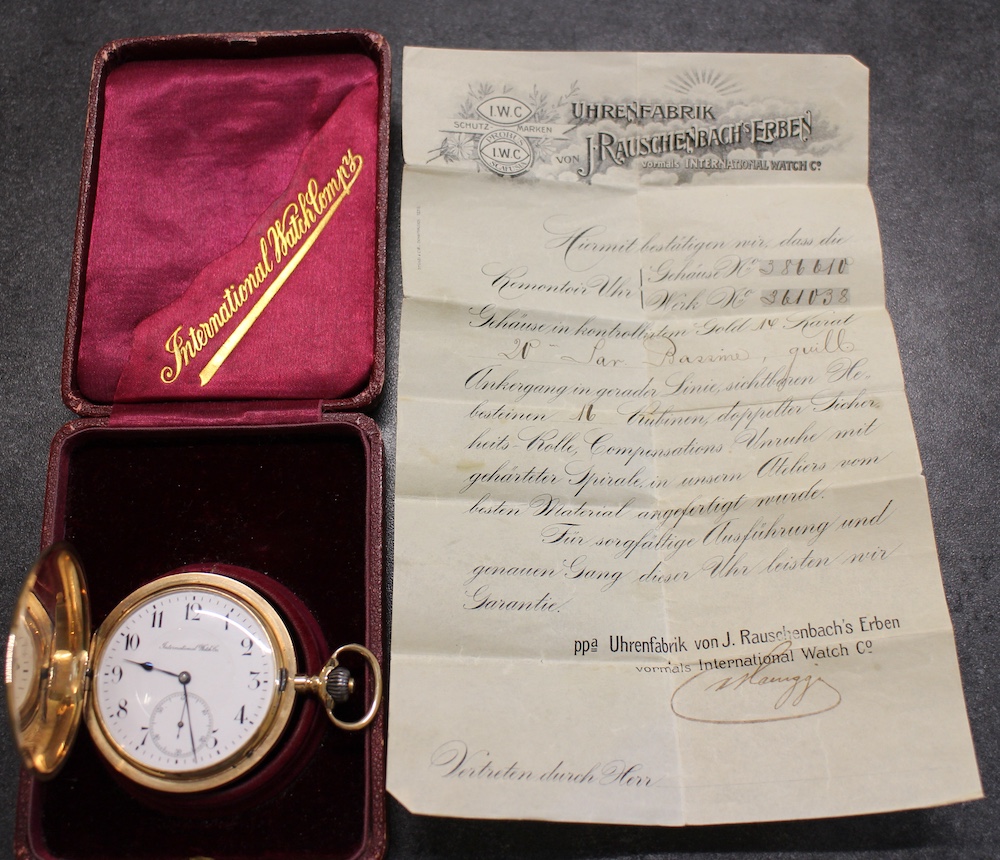 International Watch Comp'y
12
1
2
3
4
5
7
8
9
10
11
International Watch Co
I.W.C
SCHUTZ MARKEN
PROBUS
I.W.C
SCAFUSIA
UHRENFABRIK
VON J. RAUSCHENBACH'S ERBEN
vormals INTERNATIONAL WATCH Cº
Hiermit bestätigen wir, dass die
Remontoir Uhr
Gehäuse Nº 386610
Werk Nº 361038
Gehäuse in kontrolliertem Gold 14 Karat
Bassine, guill
Ankergang in gerader Linie, sichtbaren He-
besteinen 16 Rubinen, doppelter Sicher-
heits-Rolle, Compensations Unruhe mit
gehärteter Spirale, in unsern Ateliers vom
besten Material angefertigt wurde.
Für sorgfältige Ausführung und
genauen Gang dieser Uhr leisten wir
Garantie.
ppa Uhrenfabrik von J. Rauschenbach's Erben
vormals International Watch Cº
Vertreten durch Herr